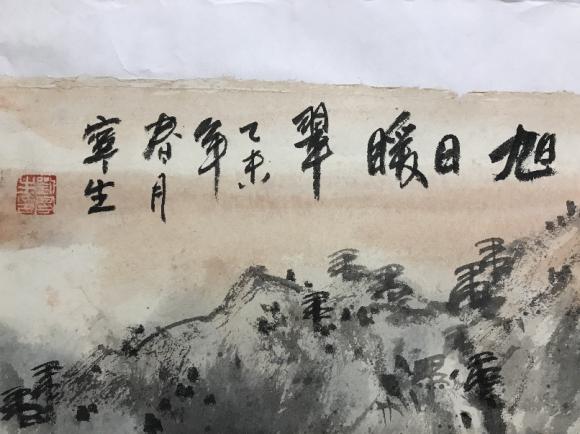 旭日暖翠
乙未年
春月
寧生